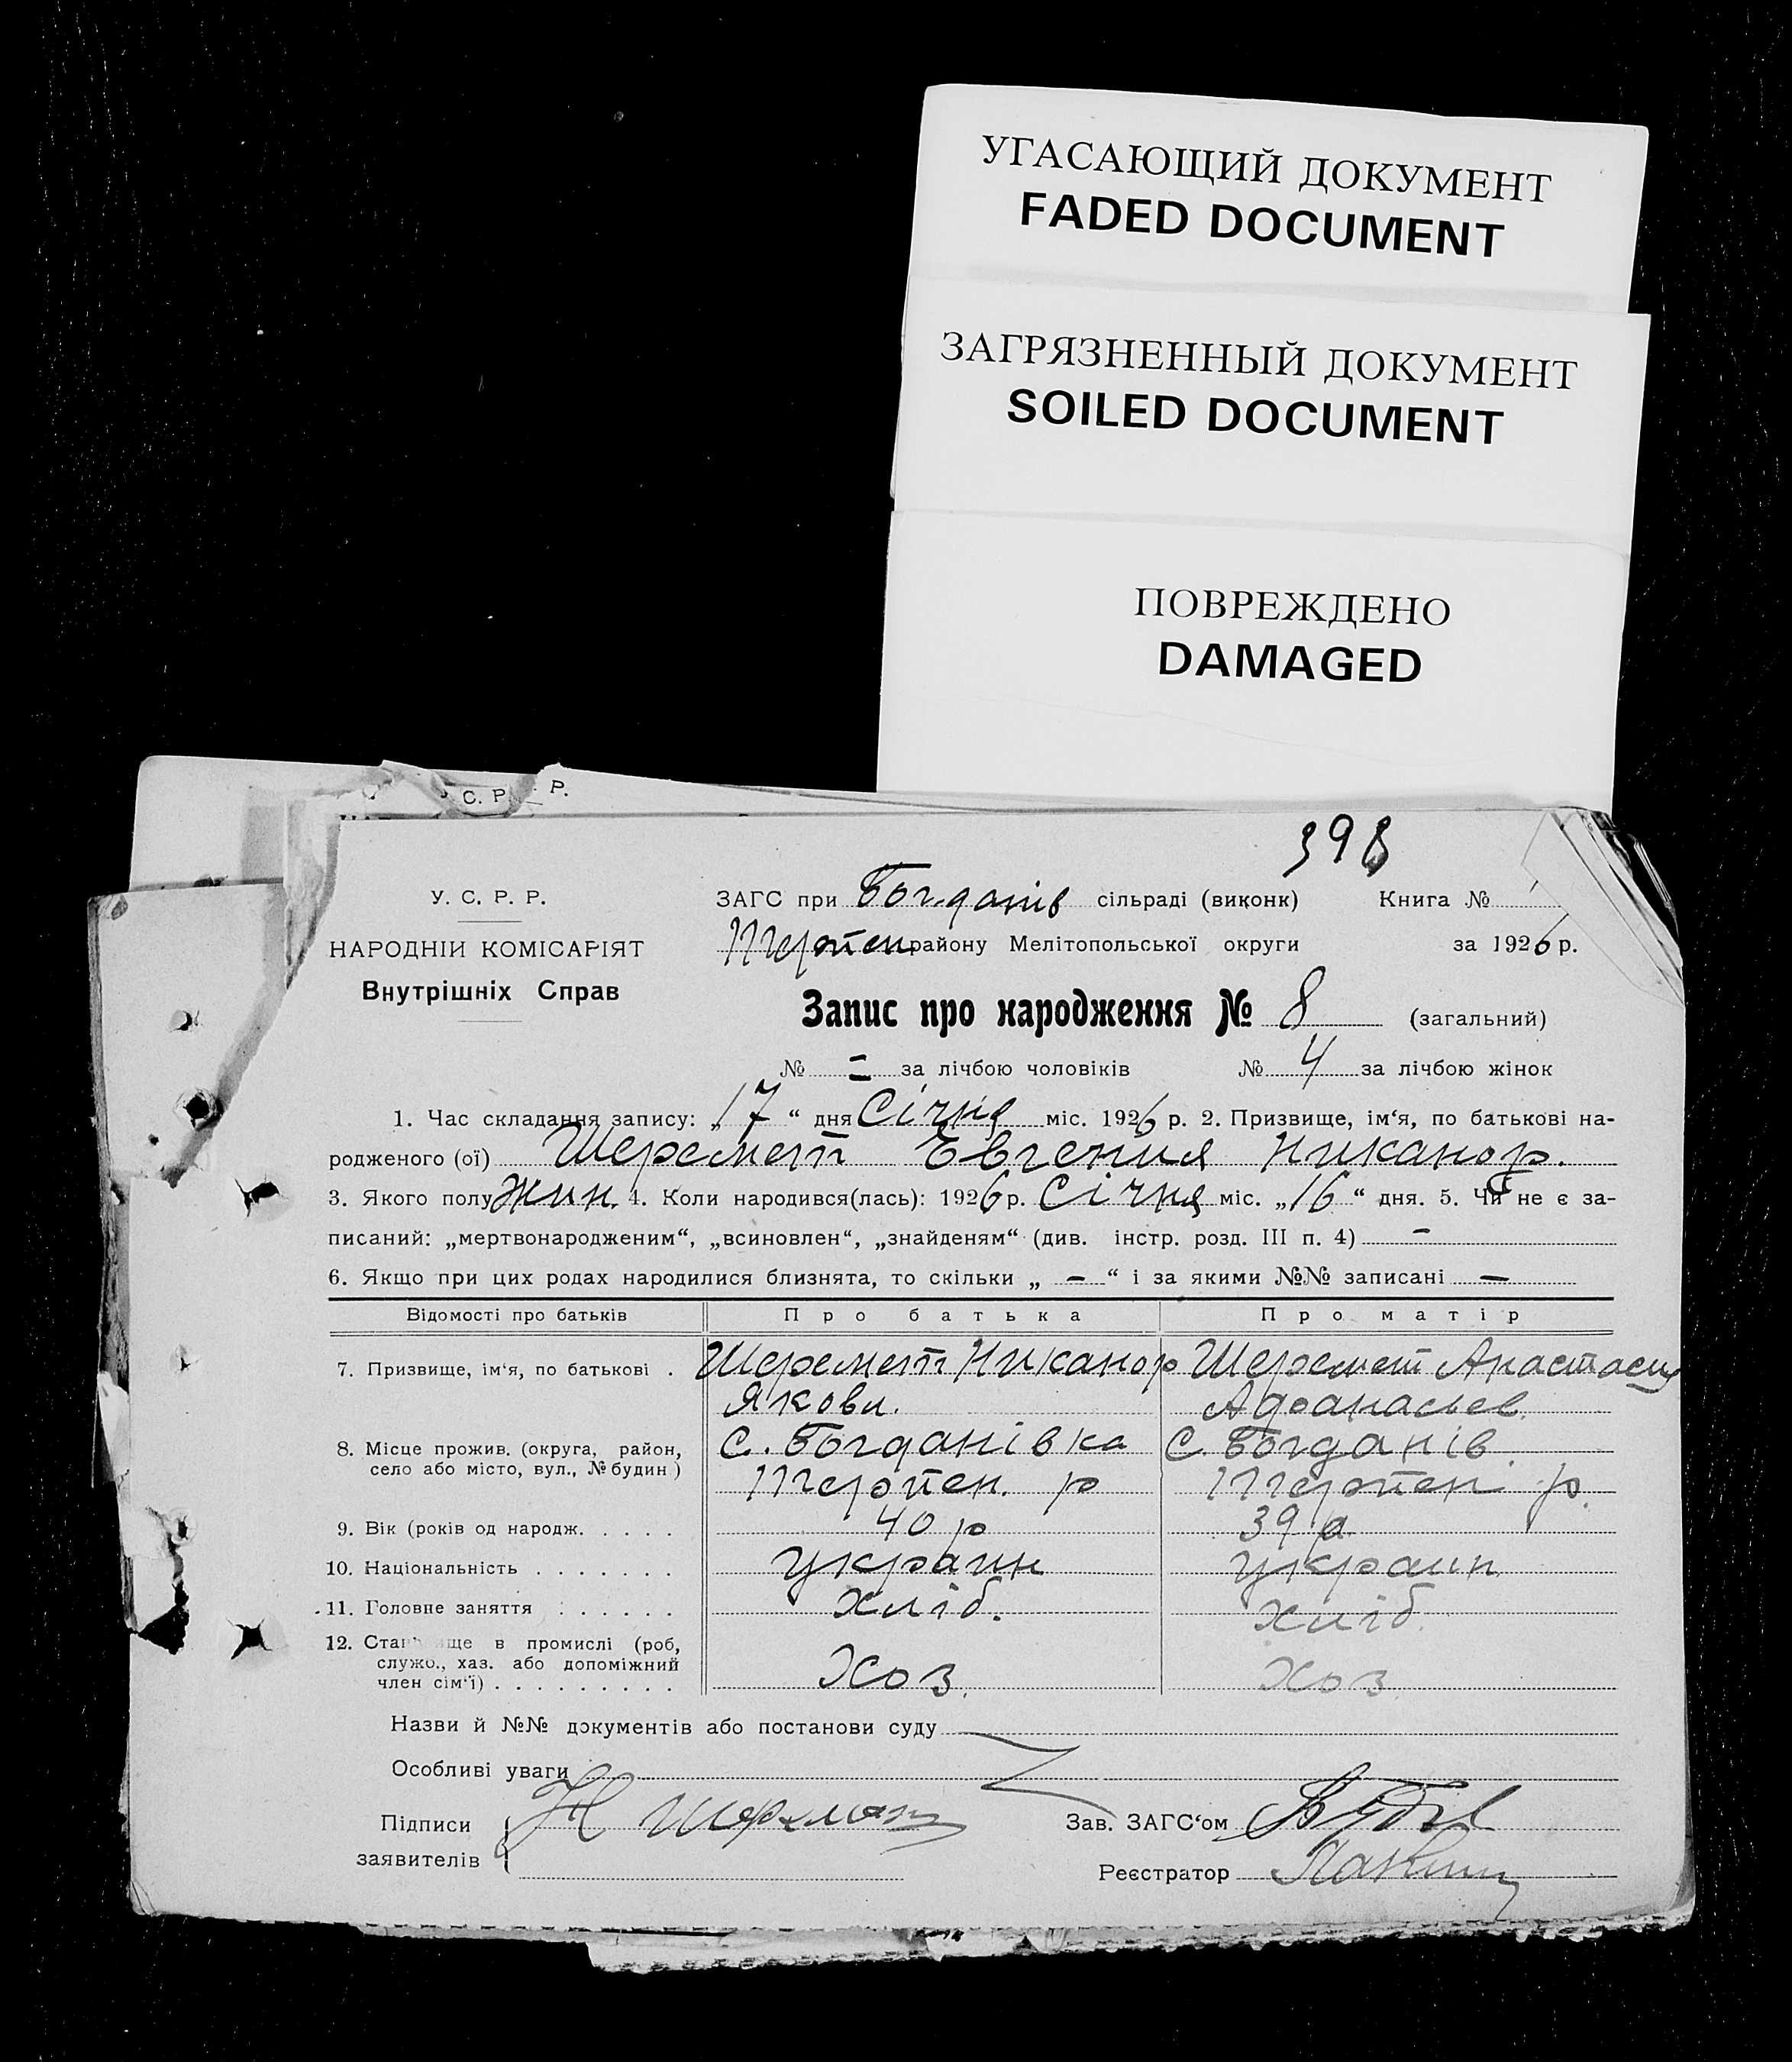 УГАСАЮЩИЙ ДОКУМЕНТ
FADED DOCUMENT
ЗАГРЯЗНЕННЫЙ ДОКУМЕНТ
SOILED DOCUMENT
ПОВРЕЖДЕНО
DAMAGED
С. Р. Р.
398
У. С. Р. Р.
ЗАГС при Богданів сільраді (виконк) Книга №
НАРОДНІЙ КОМІСАРІЯТ
Терпен району Мелітопольської округи за 1926 р.
Внутрішніх Справ
Запис про народження № 8 (загальний)
№ = за лічбою чоловіків № 4 за лічбою жінок
1. Час складання запису: „17“ дня Січня міс. 1926 р. 2. Призвище, ім‘я, по батькові на-
родженого (ої) Шеремет Евгения Никанор.
3. Якого полу жин. 4. Коли народився(лась): 1926 р. Січня міс. „16“ дня. 5. Чи не є за-
писаний: „мертвонародженим“, „всиновлен“, „знайденям“ (див. інстр. розд. III п. 4) –
6. Якщо при цих родах народилися близнята, то скільки „ – “ і за якими №№ записані –
Відомості про батьків Про батька Про матір
7. Призвище, ім‘я, по батькові . Шеремет Никанор Шеремет Анастасия
Якови. Афанасьев.
8. Місце прожив. (округа, район, С. Богданівка С. Богданів.
село або місто, вул., № будин) Терпен. р Терпен р.
9. Вік (років од народж. . . . . 40 р 39 р.
10. Національність . . . . . . . украин украин
11. Головне заняття . . . . . . хліб. хліб.
12. Становище в промислі (роб,
служб., хаз. або допоміжний
член сім‘ї) . . . . . . . . . Хоз. Хоз.
Назви й №№ документів або постанови суду
Особливі уваги
Підписи Н Шеремет Зав. ЗАГС‘ом
заявителів
Реєстратор